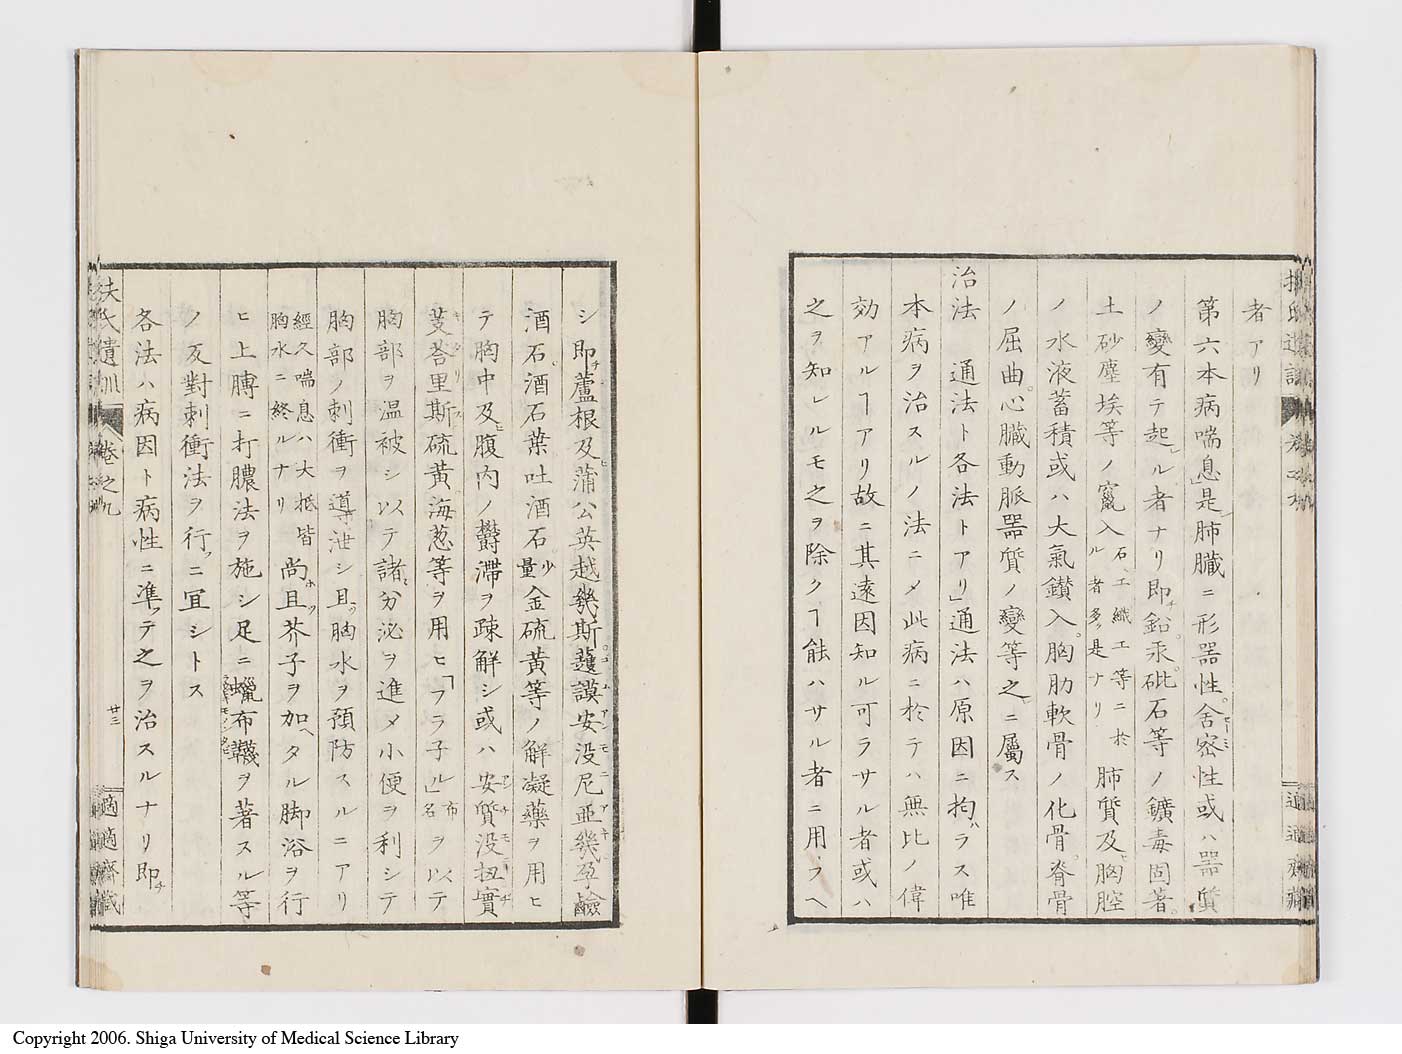 者アリ
第六本病喘息是肺臓ニ形器性舍密性或ハ器質
ノ變有テ起ル者ナリ即鉛汞砒石等ノ鑛毒固著
土砂塵埃等ノ竄入石工織工等ニ於ル者多ク是ナリ肺質及胸腔
ノ水液蓄積或ハ大氣鑚入胸肋軟骨ノ化骨脊骨
ノ屈曲心臓動脈器質ノ變等之ニ屬ス
治法 通法ト各法トアリ通法ハ原因ニ拘ハラス唯
本病ヲ治スルノ法ニメ此病ニ於テハ無比ノ偉
効アルヿアリ故ニ其遠因知ル可ラサル者或ハ
之ヲ知レルモ之ヲ除クヿ能ハサル者ニ用フヘ
シ即蘆根及蒲公英越幾斯護謨安没尼亜幾孕鹸
酒石酒石葉吐酒石少量金硫黄等ノ解凝藥ヲ用ヒ
テ胸中及腹内ノ欝滯ヲ疎解シ或ハ安質没扭實
芟荅里斯硫黄海葱等ヲ用ヒ「フラ子ル」布名ヲ以テ
胸部ヲ温被シ以テ諸分泌ヲ進メ小便ヲ利シテ
胸部ノ刺衝ヲ導泄シ且胸水ヲ預防スルニアリ
經久喘息ハ大抵皆胸水ニ終ルナリ尚且芥子ヲ加ヘタル脚浴ヲ行
ヒ上膊ニ打膿法ヲ施シ足ニ蠟布韈ヲ著スル等
ノ反對刺衝法ヲ行フニ冝シトス
各法ハ病因ト病性ニ凖テ之ヲ治スルナリ即
扶氏遺訓 卷之九 廿三 適適齋藏